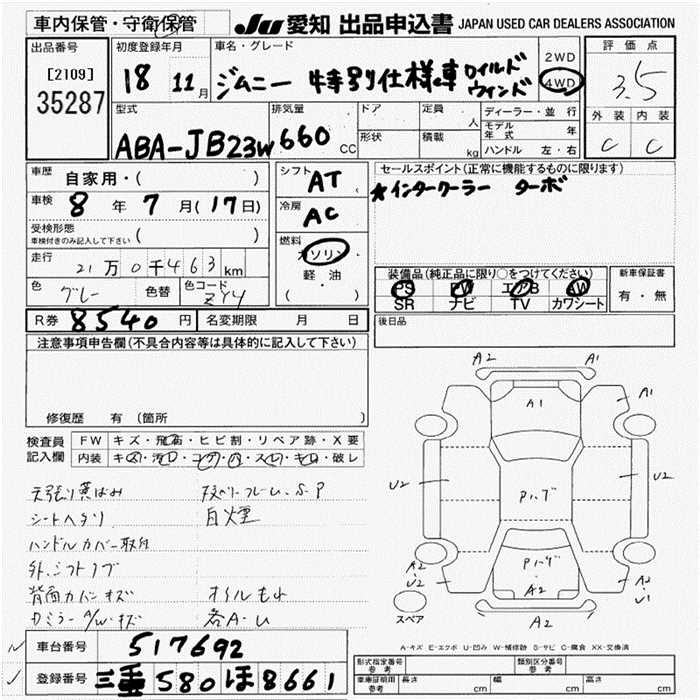 車内保管・守衛保管
JU 愛知 出品申込書 JAPAN USED CAR DEALERS ASSOCIATION
出品番号
[2109]
35287
初度登録年月
18 11月
車名・グレード
ジムニー 特別仕様車 ワイルドウィンド
2WD
4WD
評価点
3.5
外装 内装
C C
型式
ABA-JB23W
排気量
660 CC
ドア
形状
定員 人
積載 kg
ディーラー・並行
モデル年式 年
ハンドル 左・右
車歴
自家用・( )
車検
8年 7月(17日)
受検形態
車検付きのみ記入して下さい ( )
走行
21万0千463km
色
グレー
色替
色コード
ZY4
シフト
AT
冷房
AC
燃料
ガソリン
軽・油
( )
セールスポイント(正常に機能するものに限ります)
★インタークーラー ターボ
装備品(純正品に限り○をつけてください)
PS PW エアB AW
SR ナビ TV カワシート
新車保証書
有・無
R券 8540円
名変期限 月 日
後日品
注意事項申告欄(不具合内容等は具体的に記入して下さい)
修復歴 有(箇所 )
検査員記入欄
FW キズ・飛石・ヒビ割・リペア跡・X要
内装 キズ・汚レ・コゲ・穴・スレ・キレ・破レ
天張り黄ばみ
シートヘタリ
ハンドルカバー取付
外シフトノブ
背面カバーキズ
白煙
オイルもれ
各A・U
車台番号
517692
登録番号
三重 580 ほ 8661
A2 A1
A1
A1
U2
U2
Pハゲ
Pハゲ
A2
A2・U2
A2・U1
スペア
A2
A-キズ E-エクボ U-凹み W-補修跡 S-サビ C-腐食 XX-交換済
形式指定番号 参考
類別区分番号 参考
車庫証明用参考
長さ cm
幅 cm
高さ cm